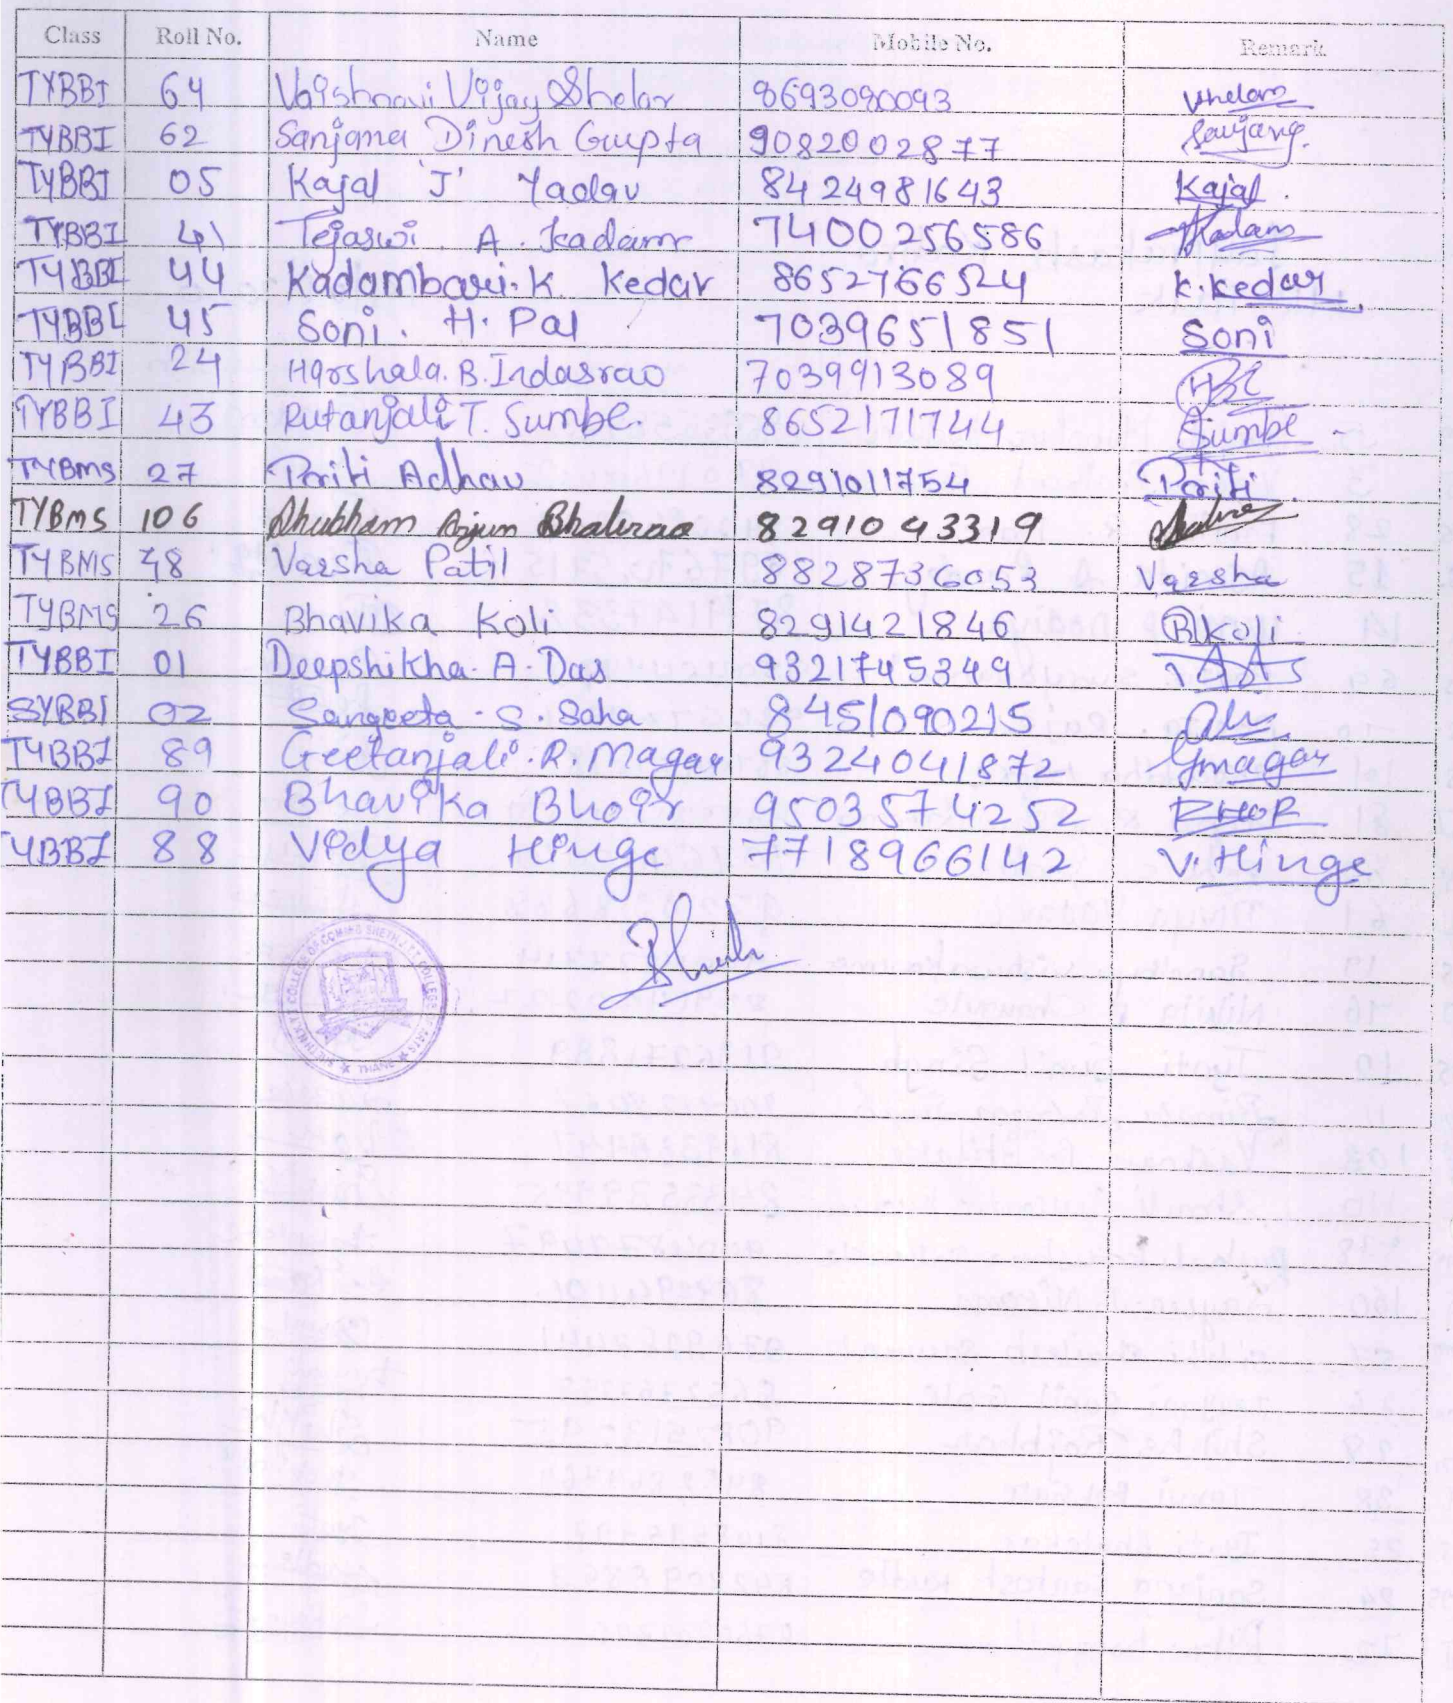 Class Roll No. Name Mobile No. Remark
TYBBI 64 Vaishnavi Vijay Shelar 8693090093 Vshelar
TYBBI 62 Sanjana Dinesh Gupta 9082002877 Sanjana.
TYBBI 05 Kajal 'J' Yadav 8424981643 Kajal.
TYBBI 41 Tejaswi. A. Kadam 7400256586 Kadam
TYBBI 44 Kadambari. K. Kedar 8652766524 K. Kedar
TYBBI 45 Soni. H. Pal 7039651851 Soni
TYBBI 24 Harshala. B. Indasrao 7039913089
TYBBI 43 Rutanjali T. Sumbe. 8652171744 Sumbe
TYBMS 27 Priti Adhav 8291011754 Priti.
TYBMS 106 Shubham Arjun Bhalerao 8291043319
TYBMS 48 Varsha Patil 8828736053 Varsha
TYBMS 26 Bhavika Koli 8291421846 BKoli
TYBBI 01 Deepshikha. A. Das 9321745349
SYBBI 02 Sangeeta. S. Saha 8451090215
TYBBI 89 Geetanjali. R. Magar 9324041872 Gmagar
TYBBI 90 Bhavika Bhoir 9503574252 BHOR
YBBI 88 Vidya Hinge 7718966142 V. Hinge
THANE